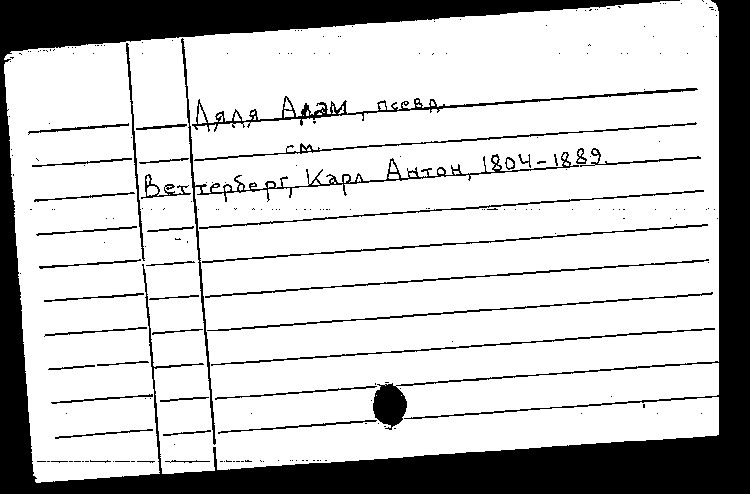 Дядя Адам, псевд.
см.
Веттерберг, Карл Антон, 1804-1889.